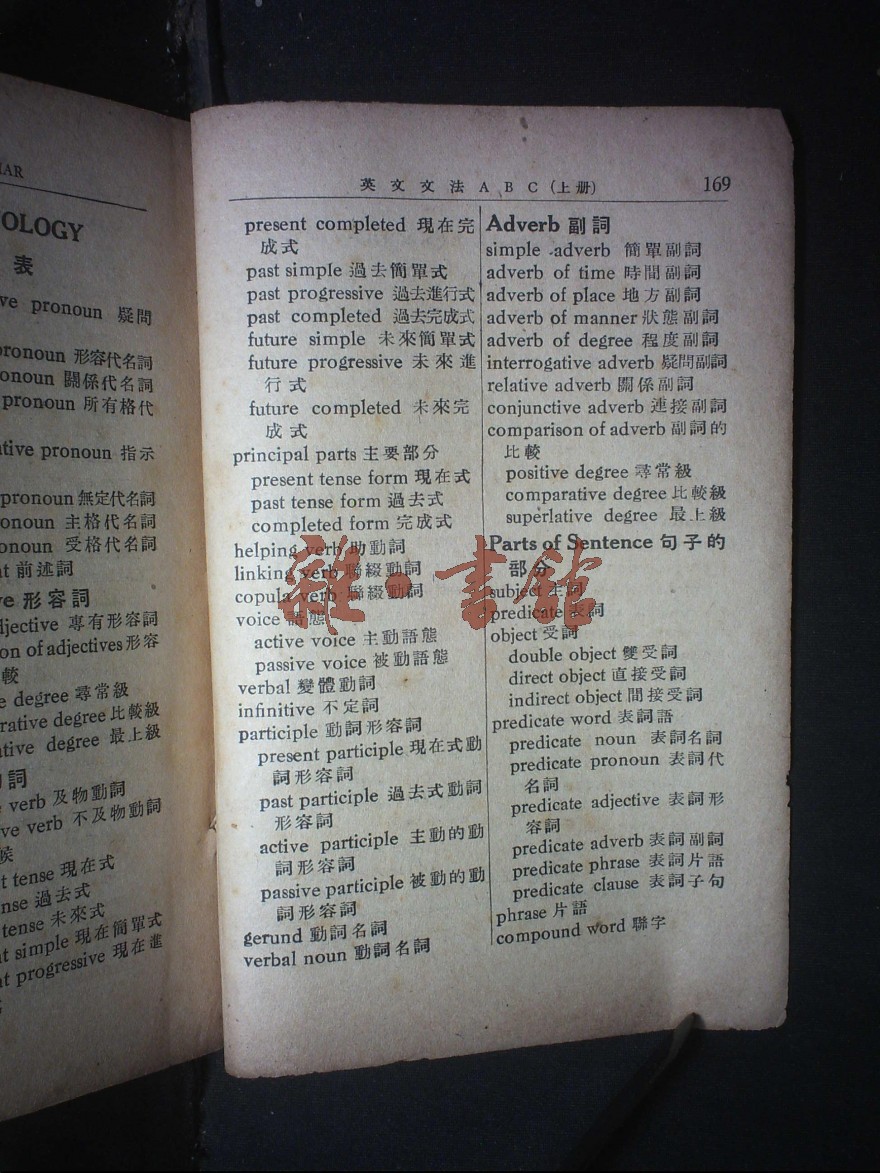 MAR
OLOGY
表
pronoun 疑問
pronoun 形容代名詞
pronoun 關係代名詞
pronoun 所有格代
pronoun 指示
pronoun 無定代名詞
pronoun 主格代名詞
pronoun 受格代名詞
前述詞
形容詞
adjective 專有形容詞
of adjectives 形容
較
degree 尋常級
degree 比較級
degree 最上級
詞
verb 及物動詞
verb 不及物動詞
tense 現在式
過去式
tense 未來式
simple 現在簡單式
progressive 現在進
英文文法ABC(上册) 169
present completed 現在完
成式
past simple 過去簡單式
past progressive 過去進行式
past completed 過去完成式
future simple 未來簡單式
future progressive 未來進
行式
future completed 未來完
成式
principal parts 主要部分
present tense form 現在式
past tense form 過去式
completed form 完成式
helping verb 助動詞
linking verb 聯綴動詞
copula verb 聯綴動詞
voice 語態
active voice 主動語態
passive voice 被動語態
verbal 變體動詞
infinitive 不定詞
participle 動詞形容詞
present participle 現在式動
詞形容詞
past participle 過去式動詞
形容詞
active participle 主動的動
詞形容詞
passive participle 被動的動
詞形容詞
gerund 動詞名詞
verbal noun 動詞名詞
Adverb 副詞
simple adverb 簡單副詞
adverb of time 時間副詞
adverb of place 地方副詞
adverb of manner 狀態副詞
adverb of degree 程度副詞
interrogative adverb 疑問副詞
relative adverb 關係副詞
conjunctive adverb 連接副詞
comparison of adverb 副詞的
比較
positive degree 尋常級
comparative degree 比較級
superlative degree 最上級
Parts of Sentence 句子的
部分
subject 主詞
predicate 表詞
object 受詞
double object 雙受詞
direct object 直接受詞
indirect object 間接受詞
predicate word 表詞語
predicate noun 表詞名詞
predicate pronoun 表詞代
名詞
predicate adjective 表詞形
容詞
predicate adverb 表詞副詞
predicate phrase 表詞片語
predicate clause 表詞子句
phrase 片語
compound word 聯字
雜·書館